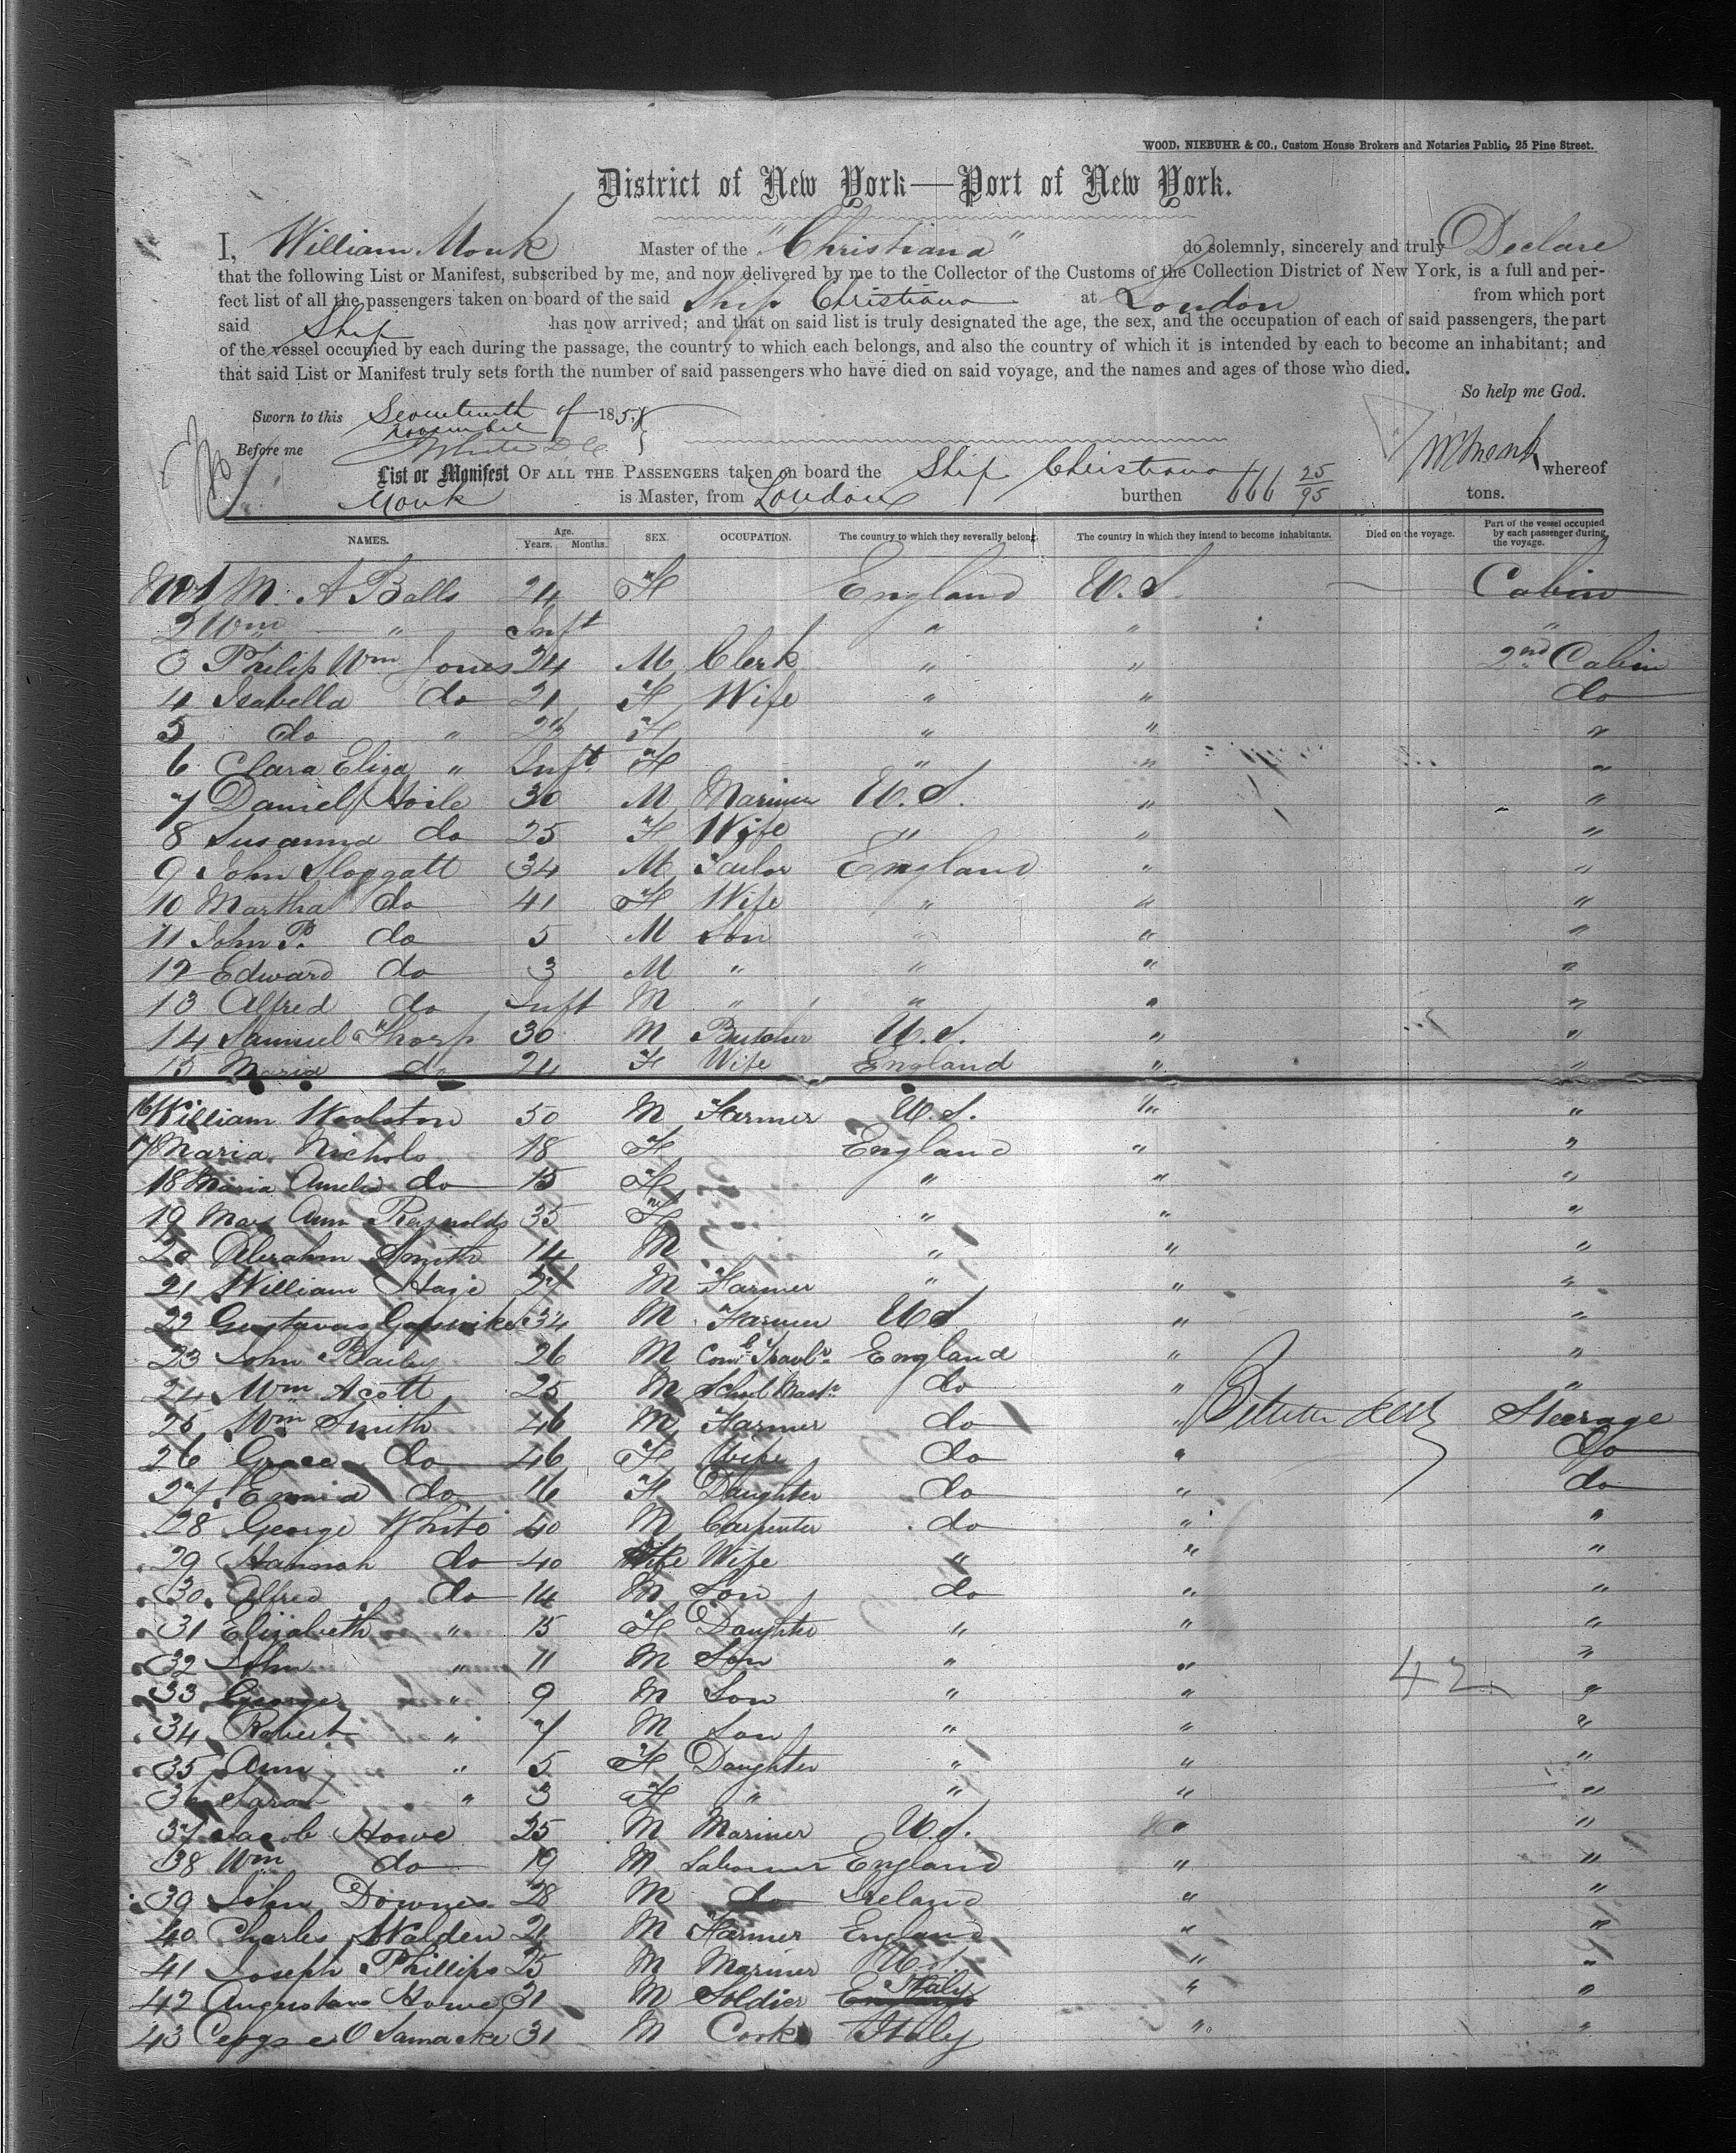 WOOD, NIEBUHR & CO., Custom House Brokers and Notaries Public, 25 Pine Street.
District of New York—Port of New York.
I, William Monk Master of the "Christiana" do solemnly, sincerely and truly Declare
that the following List or Manifest, subscribed by me, and now delivered by me to the Collector of the Customs of the Collection District of New York, is a full and per-
fect list of all the passengers taken on board of the said Ship Christiana at London from which port
said Ship has now arrived; and that on said list is truly designated the age, the sex, and the occupation of each of said passengers, the part
of the vessel occupied by each during the passage, the country to which each belongs, and also the country of which it is intended by each to become an inhabitant; and
that said List or Manifest truly sets forth the number of said passengers who have died on said voyage, and the names and ages of those who died.
So help me God.
Sworn to this Seventeenth of 185
November
Before me White
Wm Monk
List or Manifest OF ALL THE PASSENGERS taken on board the Ship Christiana whereof
Monk is Master, from London burthen 666 25/95 tons.
NAMES. Age. Years. Months. SEX. OCCUPATION. The country to which they severally belong. The country in which they intend to become inhabitants. Died on the voyage. Part of the vessel occupied by each passenger during the voyage.
1 M. A Balls 24 F England U.S. Cabin
2 Wm " Inft " " "
3 Philip Wm Jones 24 M Clerk " " 2nd Cabin
4 Isabella do 21 F Wife " " do
5 do " F " " "
6 Clara Eliza " Inft F " " "
7 Daniel Hoile 30 M Mariner U.S. " "
8 Susanna do 25 F Wife " " "
9 John Sloggatt 34 M Tailor England " "
10 Martha do 41 F Wife " " "
11 John P. do 5 M Son " " "
12 Edward do 3 M " " " "
13 Alfred do Inft M " " " "
14 Samuel Thorp 30 M Butcher U.S. " "
15 Maria do 24 F Wife England " "
16 William Woolston 50 M Farmer U.S. " "
17 Maria Nichols 18 F England " "
18 Maria Amelia do 15 F " " "
19 Mary Ann Reynolds 35 F " " "
20 Abraham Smith 14 M " " "
21 William Hage 27 M Farmer " " "
22 Gustavus 34 M Farmer US " "
23 John Baily 26 M Coml Travlr England " "
24 Wm Acott 25 M School Mastr do " "
25 Wm Smith 46 M Farmer do " Between decks Steerage
26 Grace do 46 F Wife do " Do
27 Emma do 16 F Daughter do " do
28 George White 40 M Carpenter do " "
29 Hannah do 40 Wife " " "
30 Alfred do 14 M Son do " "
31 Elizabeth " 15 F Daughter " " "
32 John " 11 M Son " " "
33 George " 9 M Son " " "
34 Robert " 7 M Son " " "
35 Ann " 5 F Daughter " " "
36 Sarah " 3 F " " " "
37 Jacob Howe 25 M Mariner U.S. " "
38 Wm do 19 M Labourer England " "
39 John Downes 28 M do Ireland " "
40 Charles Walden 21 M Farmer England " "
41 Joseph Phillips 25 M Mariner U.S. " "
42 Augustus Howe 31 M Soldier Italy " "
43 31 M Cook Italy " "
42